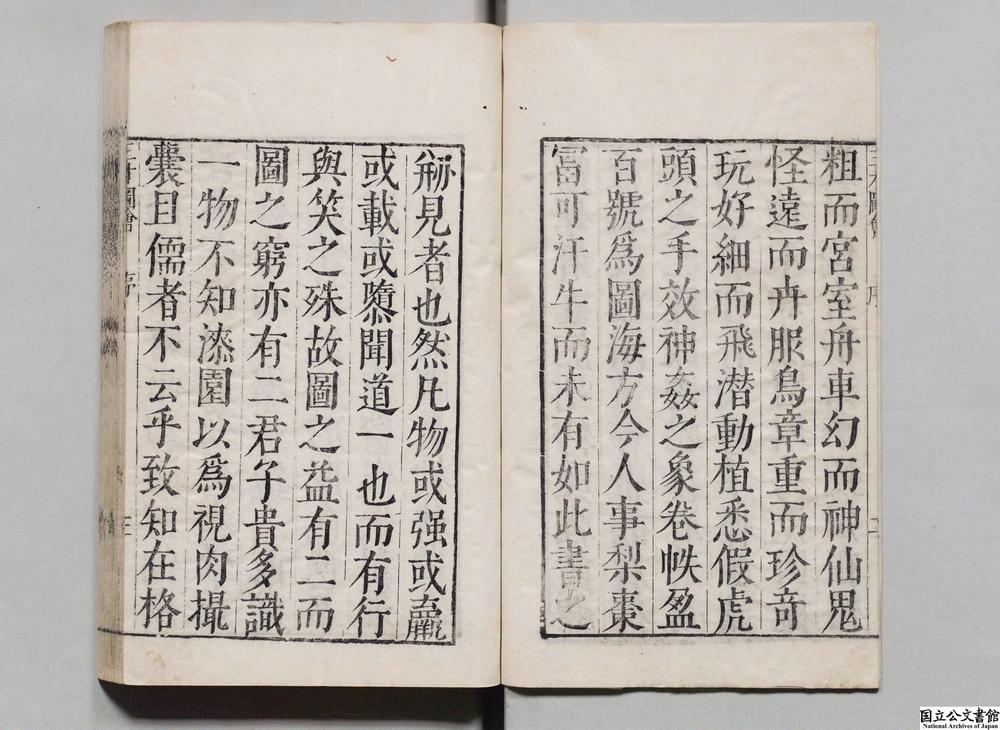 粗而宮室舟車幻而神仙鬼
怪遠而卉服鳥章重而珍竒
玩好細而飛潜動植悉假虎
頭之手效神姦之象卷帙盈
百號爲圖海方今人事梨棗
富可汗牛而未有如此書之
剏見者也然凡物或强或羸
或載或隳聞道一也而有行
與笑之殊故圖之益有二而
圖之窮亦有二君子貴多識
一物不知漆園以爲視肉撮
囊目儒者不云乎致知在格
三才圖會
序
三
國立公文書館
National Archives of Japan